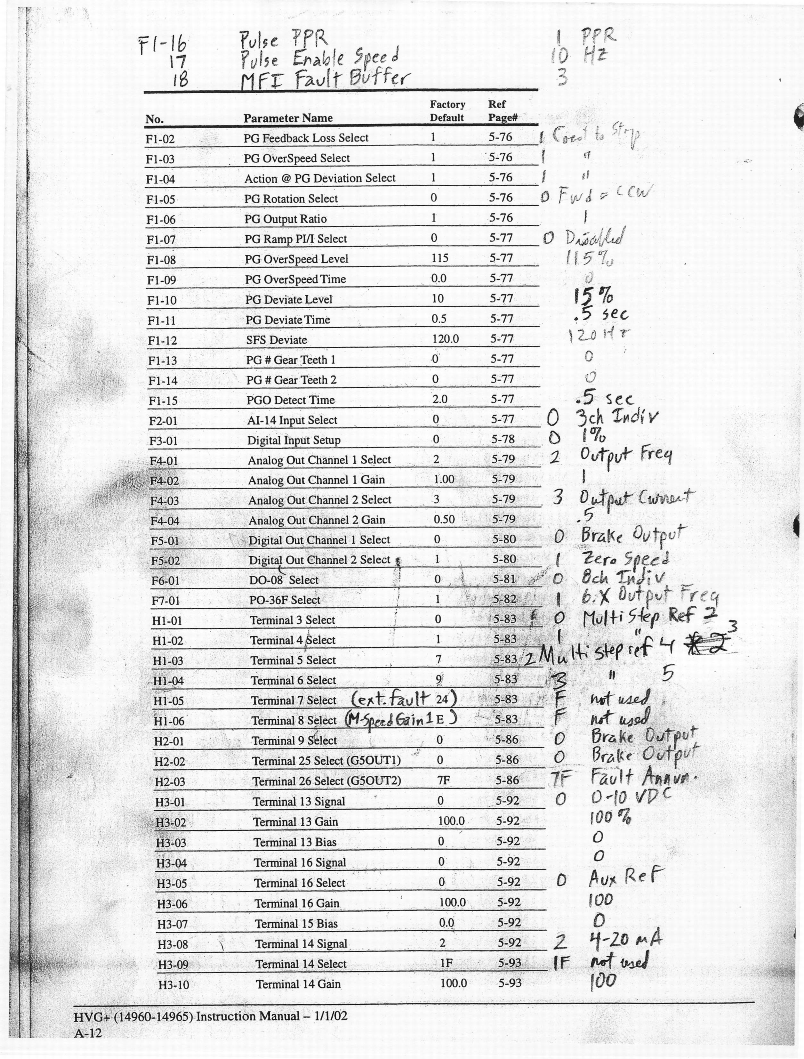 F1-16 Pulse PPR 1 PPR
17 Pulse Enable Speed 10 Hz
18 MFI Fault Buffer 3
Factory Ref
No. Parameter Name Default Page#
F1-02 PG Feedback Loss Select 1 5-76 1 Coast to Stop
F1-03 PG OverSpeed Select 1 5-76 1 "
F1-04 Action @ PG Deviation Select 1 5-76 1 "
F1-05 PG Rotation Select 0 5-76 0 Fwd = CCW
F1-06 PG Output Ratio 1 5-76 1
F1-07 PG Ramp PI/I Select 0 5-77 0 Disabled
F1-08 PG OverSpeed Level 115 5-77 115%
F1-09 PG OverSpeed Time 0.0 5-77 0
F1-10 PG Deviate Level 10 5-77 15%
F1-11 PG Deviate Time 0.5 5-77 .5 sec
F1-12 SFS Deviate 120.0 5-77 120 Hz
F1-13 PG # Gear Teeth 1 0 5-77 0
F1-14 PG # Gear Teeth 2 0 5-77 0
F1-15 PGO Detect Time 2.0 5-77 .5 sec
F2-01 AI-14 Input Select 0 5-77 0 3ch Indiv
F3-01 Digital Input Setup 0 5-78 0 1%
F4-01 Analog Out Channel 1 Select 2 5-79 2 Output Freq
F4-02 Analog Out Channel 1 Gain 1.00 5-79 1
F4-03 Analog Out Channel 2 Select 3 5-79 3 Output Current
F4-04 Analog Out Channel 2 Gain 0.50 5-79 .5
F5-01 Digital Out Channel 1 Select 0 5-80 0 Brake Output
F5-02 Digital Out Channel 2 Select 1 5-80 1 Zero Speed
F6-01 DO-08 Select 0 5-81 0 8ch Indiv
F7-01 PO-36F Select 1 5-82 1 6:X Output Freq
H1-01 Terminal 3 Select 0 5-83 0 Multi Step Ref 2
H1-02 Terminal 4 Select 1 5-83 1 " 3
H1-03 Terminal 5 Select 7 5-83 2 Multi step ref 4
H1-04 Terminal 6 Select 9 5-83 3 " 5
H1-05 Terminal 7 Select (ext. fault 24) 5-83 F not used
H1-06 Terminal 8 Select (M-Speed Gain 1 E) 5-83 F not used
H2-01 Terminal 9 Select 0 5-86 0 Brake Output
H2-02 Terminal 25 Select (G5OUT1) 0 5-86 0 Brake Output
H2-03 Terminal 26 Select (G5OUT2) 7F 5-86 7F Fault Annun.
H3-01 Terminal 13 Signal 0 5-92 0 0-10 VDC
H3-02 Terminal 13 Gain 100.0 5-92 100%
H3-03 Terminal 13 Bias 0 5-92 0
H3-04 Terminal 16 Signal 0 5-92 0
H3-05 Terminal 16 Select 0 5-92 0 Aux Ref
H3-06 Terminal 16 Gain 100.0 5-92 100
H3-07 Terminal 15 Bias 0.0 5-92 0
H3-08 Terminal 14 Signal 2 5-92 2 4-20 mA
H3-09 Terminal 14 Select 1F 5-93 1F not used
H3-10 Terminal 14 Gain 100.0 5-93 100
HVG+ (14960-14965) Instruction Manual – 1/1/02
A-12